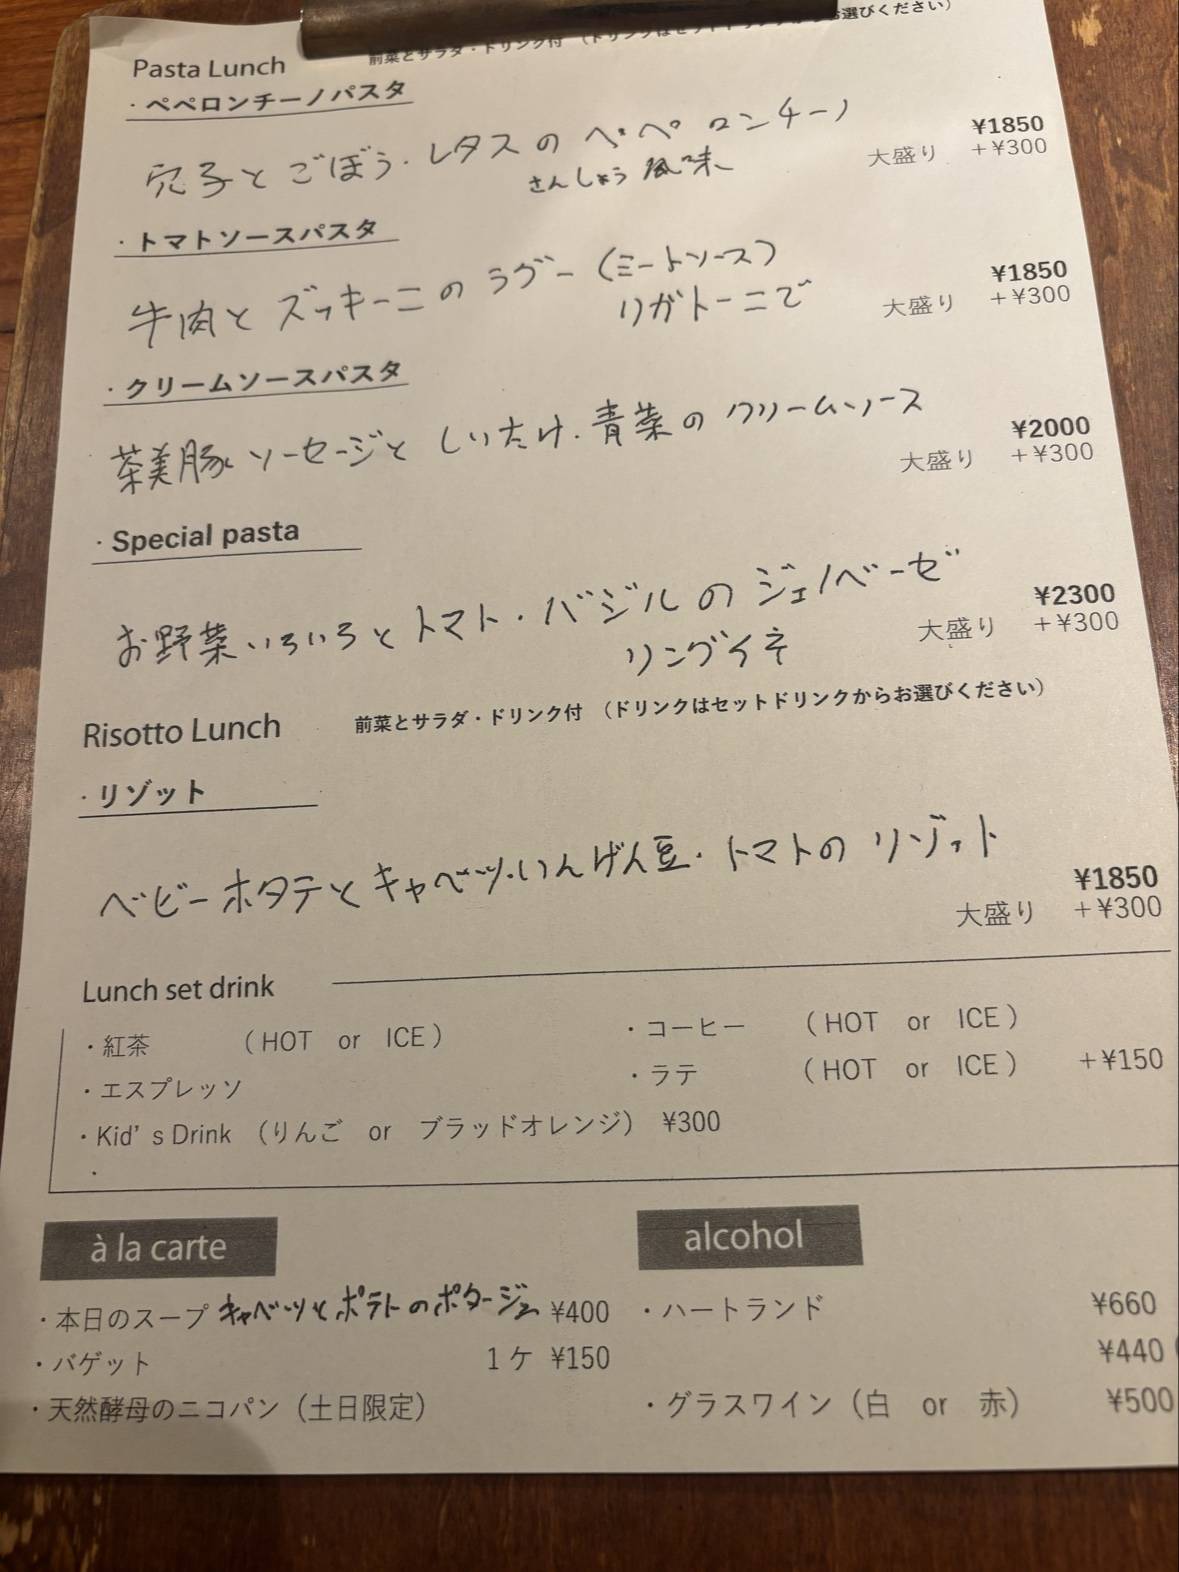 Pasta Lunch 前菜とサラダ・ドリンク付 （ドリンクはセットドリンクからお選びください）
・ペペロンチーノパスタ
穴子とごぼう・レタスのペペロンチーノ
さんしょう風味
¥1850
大盛り ＋¥300
・トマトソースパスタ
牛肉とズッキーニのラグー（ミートソース）
リガトーニで
¥1850
大盛り ＋¥300
・クリームソースパスタ
茶美豚ソーセージとしいたけ・青菜のクリームソース
¥2000
大盛り ＋¥300
・Special pasta
お野菜いろいろとトマト・バジルのジェノベーゼ
リングイネ
¥2300
大盛り ＋¥300
Risotto Lunch 前菜とサラダ・ドリンク付 （ドリンクはセットドリンクからお選びください）
・リゾット
ベビーホタテとキャベツ・いんげん豆・トマトのリゾット
¥1850
大盛り ＋¥300
Lunch set drink
・紅茶 （HOT or ICE） ・コーヒー （HOT or ICE）
・エスプレッソ ・ラテ （HOT or ICE） ＋¥150
・Kid's Drink （りんご or ブラッドオレンジ） ¥300
・
à la carte alcohol
・本日のスープ キャベツとポテトのポタージュ ¥400 ・ハートランド ¥660
・バゲット 1ケ ¥150 ¥440
・天然酵母のニコパン（土日限定） ・グラスワイン（白 or 赤） ¥500